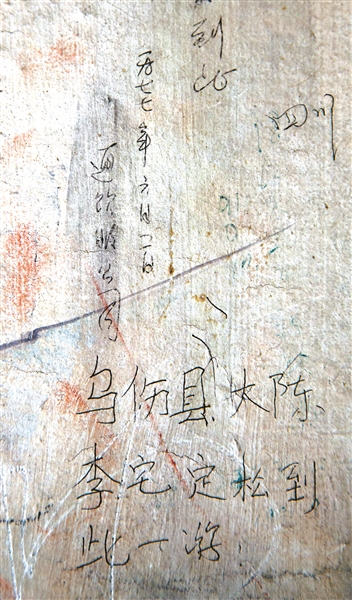 四川
到此
七七年六月二日
乌伤县大陈
李宅定松到
此一游